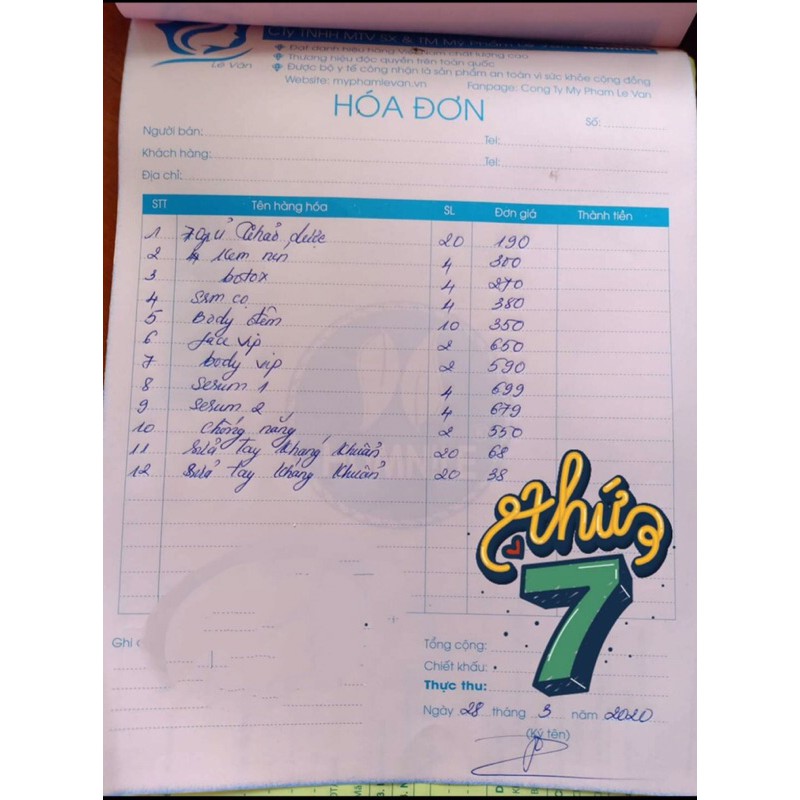 Cty TNHH MTV SX & TM Mỹ Phẩm
Đạt danh hiệu hàng Việt Nam chất lượng cao
Thương hiệu độc quyền trên toàn quốc
Được bộ y tế công nhận là sản phẩm an toàn vì sức khỏe cộng đồng
Lê Vân
Website: myphamlevan.vn Fanpage: Cong Ty My Pham Le Van
HÓA ĐƠN
Số:
Người bán: Tel:
Khách hàng: Tel:
Địa chỉ:
STT Tên hàng hóa SL Đơn giá Thành tiền
1 thảo dược 20 190
2 Kem nụn 4 300
3 botox 4 270
4 4 380
5 Body đêm 10 350
6 face vip 2 650
7 body vip 2 590
8 Serum 1 4 699
9 Serum 2 4 679
10 chống nắng 2 550
11 Rửa tay kháng khuẩn 20 68
12 Rửa tay kháng khuẩn 20 38
thứ
7
Ghi
Tổng cộng:
Chiết khấu:
Thực thu:
Ngày 28 tháng 3 năm 2020
(Ký tên)